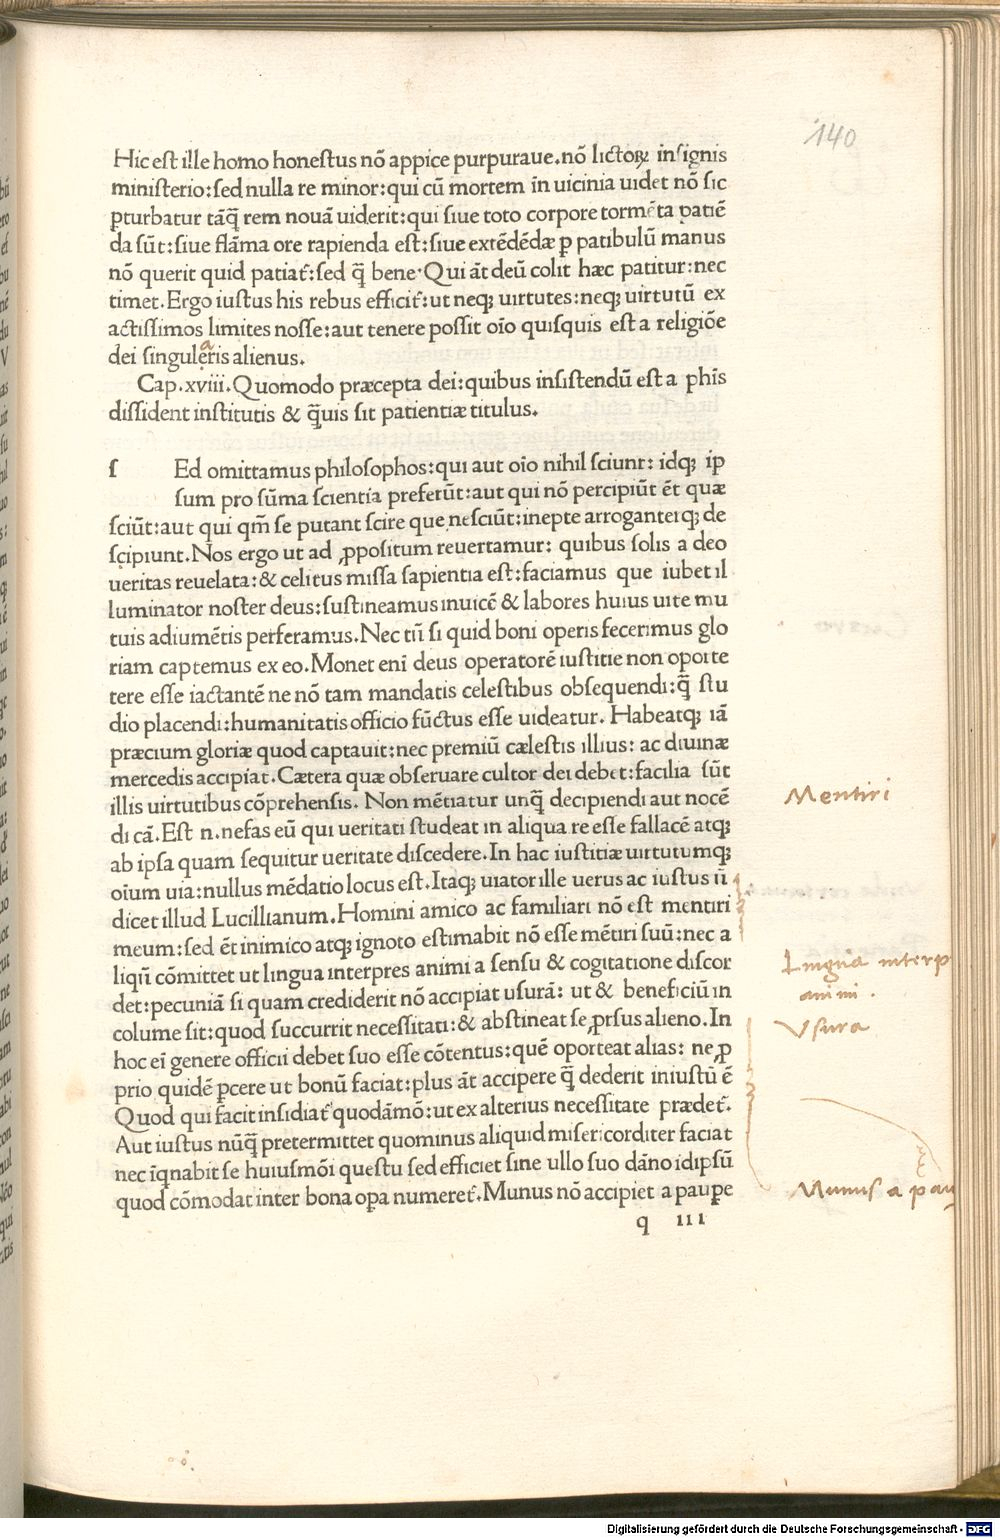 140
Hic est ille homo honestus nō appice purpuraue.nō lictoꝝ insignis
ministerio:sed nulla re minor:qui cū mortem in uicinia uidet nō sic
ꝑturbatur tāq̄ rem nouā uiderit:qui siue toto corpore tormēta patiē
da sūt:siue flāma ore rapienda est:siue extēdēdæ ꝑ patibulū manus
nō querit quid patiat᷑:sed q̄ bene·Qui āt deū colit hæc patitur:nec
timet.Ergo iustus his rebus efficit᷑:ut neqꝫ uirtutes:neqꝫ uirtutū ex
actissimos limites nosse:aut tenere possit oīo quisquis est a religiōe
dei singuleris alienus.
a
Cap.xviii.Quomodo præcepta dei:quibus insistendū est a phīs
dissident institutis & q̄uis sit patientiæ titulus.
s Ed omittamus philosophos:qui aut oīo nihil sciunt: idqꝫ ip
sum pro sūma scientia preferūt:aut qui nō percipiūt ēt quæ
sciūt:aut qui qm̄ se putant scire que nesciūt:inepte arroganterqꝫ de
scipiunt.Nos ergo ut ad ꝓpositum reuertamur: quibus solis a deo
ueritas reuelata:& celitus missa sapientia est:faciamus que iubet il
luminator noster deus:sustineamus inuicē & labores huius uite mu
tuis adiumētis perferamus.Nec tn̄ si quid boni operis fecerimus glo
riam captemus ex eo.Monet enī deus operatorē iustitie non oporte
tere esse iactantē ne nō tam mandatis celestibus obsequendi:q̄ stu
dio placendi:humanitatis officio fūctus esse uideatur. Habeatqꝫ iā
præcium gloriæ quod captauit:nec premiū cælestis illius: ac diuinæ
mercedis accipiat.Cætera quæ obseruare cultor dei debet:facilia sūt
illis uirtutibus cōprehensis. Non mētiatur unq̄ decipiendi aut nocē
di cā.Est n.nefas eū qui ueritati studeat in aliqua re esse fallacē atqꝫ
ab ipsa quam sequitur ueritate discedere.In hac iustitiæ uirtutumqꝫ
oīum uia:nullus mēdatio locus est.Itaqꝫ uiator ille uerus ac iustus ū
dicet illud Lucillianum.Homini amico ac familiari nō est mentiri
meum:sed ēt inimico atqꝫ ignoto estimabit nō esse mētiri suū:nec a
liqū cōmittet ut lingua interpres animi a sensu & cogitatione discor
det:pecuniā si quam crediderit nō accipiat usurā: ut & beneficiū in
colume sit:quod succurrit necessitati:& abstineat se ꝓrsus alieno.In
hoc eī genere officii debet suo esse cōtentus:quē oporteat alias: ne ꝓ
prio quidē ꝑcere ut bonū faciat:plus āt accipere q̄ dederit iniustū ē
Quod qui facit insidiat᷑ quodāmō:ut ex alterius necessitate prædet᷑.
Aut iustus nūq̄ pretermittet quominus aliquid misericorditer faciat
nec īqnabit se huiusmōi questu sed efficiet sine ullo suo dāno idipsū
quod cōmodat inter bona oꝑa numeret᷑.Munus nō accipiet a pauꝑe
q iii
Mentiri
Lingua interp
animi .
Vsura
Munus a pau
Digitalisierung gefördert durch die Deutsche Forschungsgemeinschaft - DFG